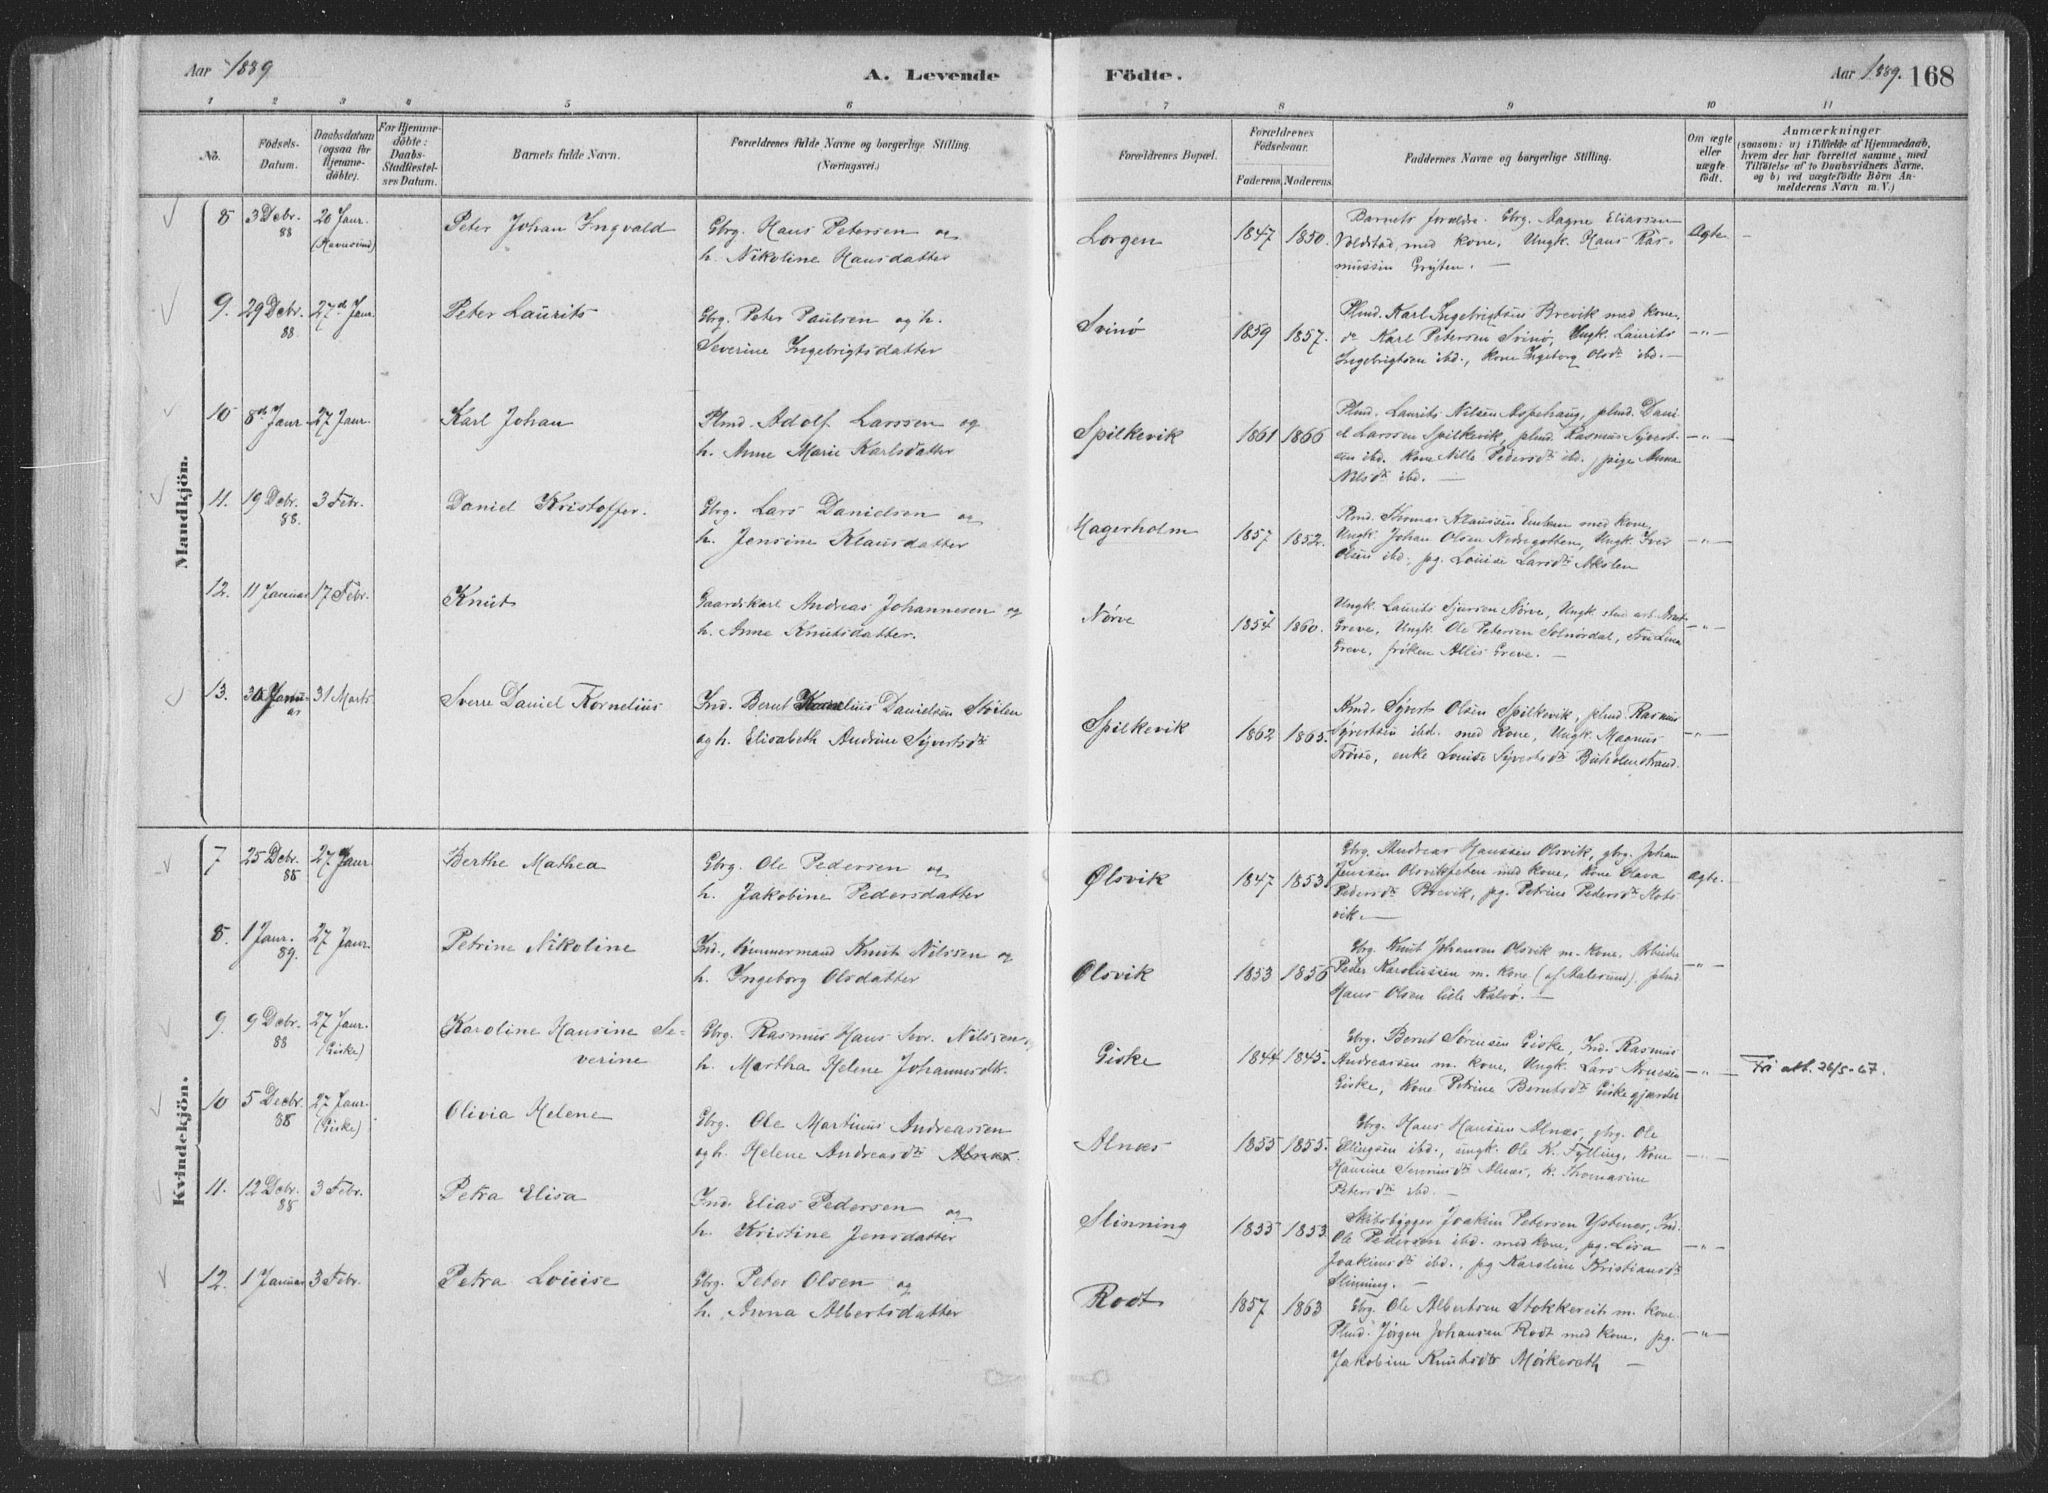 Aar 1889
A. Levende
Födte.
Aar 1889. 168
1 2 3 4 5 6 7 8 9 10 11
No.
Födsels-Datum.
Daabsdatum (ogsaa for Hjemme-döbte).
For Hjemme-döbte: Daabs-Stadfæstel-ses Datum.
Barnets fulde Navn.
Forældrenes fulde Navne og borgerlige Stilling. (Næringsvei.)
Forældrenes Bopæl.
Forældrenes Födselsaar.
Faderens Moderens
Faddernes Navne og borgerlige Stilling.
Om ægte eller uægte födt.
Anmærkninger
(saasom: a) i Tilfælde af Hjemmedaab,
hvem der har forrettet samme, med
Tilföielse af to Daabsvidners Navne,
og b) ved uægtefödte Börn An-
melderens Navn m. V.)
Mandkjön.
8 3 Debr. 88 20 Janr. (Havnsund) Peter Johan Ingvald
Gbrg. Hans Petersen og
h. Nikoline Hansdatter
Lorgen 1847 1850.
Barnets forældre. Gbrg. Aagne Eliassen
Voldstad, med kone, Ungk. Hans Ras-
mussen Gryten. —
Ægte —
9. 29 Debr. 88. 27d Janr. Peter Laurits
Gbrg. Peter Paulsen og h.
Severine Ingebrigtsdatter
Svinø 1859 1857.
Plmd. Karl Ingebrigtsen Brevik med kone,
do Karl Petersen Svinø, Ungk. Laurits
Ingebrigtsen ibd., kone Ingeborg Olsdr ibd. —
—"—
10 8de Janr 27 Janr. Karl Johan
Plmd. Adolf Larssen og
h. Anne Marie Karlsdatter
Spilkevik 1861 1866
Plmd. Laurits Nilsen Aspehaug, plmd. Dani-
el Larssen Spilkevik, plmd. Rasmus Syvert-
sen ibd. kone Nille Pedersdr ibd., pige Anna
Nilsdr ibd. —
—"—
11. 19 Debr. 88. 3 Febr. Daniel Kristoffer.
Gbrg. Lars Danielsen og
h. Jensine Klausdatter
Magerholm 1857 1852.
Plmd. Thomas Klaussen Emlem med kone,
Ungk. Johan Olsen Nedregotten, Ungk. Iver
Olsen ibd., pg. Louise Larsdr Akslen
—"—
12. 11 Januar 17 Febr. Knut
Gaardskarl Andreas Johannesen og
h. Anne Knutsdatter.
Nørve 1854 1860.
Ungk. Laurits Sjursen Nørve, Ungk. stud art. Arnt
Greve, Ungk. Ole Petersen Solnørdal, Fru Lina
Greve, frøken Allis Greve. —
—"—
13. 30 Janu-ar 31 Marts Sverre Daniel Kornelius
Ind. Bernt Kornelius Danielsen Stølen
og h. Elisabeth Andrine Syvertsdr
Spilkevik 1862 1865.
Kmd. Syvert Olsen Spilkevik, plmd. Rasmus
Syvertsen ibd. med kone, Ungk. Magnus
Frøise, enke Louise Syvertsdr Buholmstrand.
—"—
Kvindekjön.
7 25 Debr. 88 27 Janr Berthe Mathea
Gbrg. Ole Pedersen og
h. Jakobine Pedersdatter
Ølsvik 1847 1853.
Gbrg. Andreas Hanssen Olsvik, gbrg. Johan
Jenssen Olsvikfeten med kone, kone Olava
Pedersdr Brevik, pg. Petrine Pedersdr Slots-
vik. —
Ægte.
8. 1 Janr. 89. 27 Janr. Petrine Nikoline
Ind., tømmermand Knut Nilssen og
h. Ingeborg Olsdatter
Olsvik 1853 1856
Gbrg. Knut Johansen Olsvik m. kone, Arbeider
Peder Karolussen m. kone (af Aalesund). plmd.
Hans Olsen lille Kalvø. —
—"—
9. 9 Debr. 88 27 Janr. (Giske) Karoline Hansine Se-
verine
Gbrg. Rasmus Hans Sevr. Nilssen og
h. Martha Helene Johannesdtr.
Giske 1844 1845.
Gbrg. Bernt Sørensen Giske, Ind. Rasmus
Andreassen m. kone, Ungk. Lars Knutsen
Giske, kone Petrine Berntsdr Giskegjærdet
—"— Fri att. 26/5-67.
10 5 Decbr 88 27 Janr. (Giske) Olivia Helene
Gbrg. Ole Martinus Andreassen
og h. Helene Andreasdr Alnæs.
Alnæs 1855 1855.
Gbrg. Hans Hansen Alnæs, gbrg. Ole
Ellingsen ibd., ungk. Ole K. Fylling, kone
Hansine Severinsdr Alnæs, k. Thomasine
Petersdr ibd. —
—"—
11. 12 Debr. 88 3 Febr. Petra Elisa
Ind. Elias Pedersen og
h. Kristine Jensdatter
Slinning 1855 1853
Skibsbygger Joakim Petersen Ystenes, Ind.
Ole Pedersen ibd. med kone, pg. Lisa
Joakimsdr ibd., pg Karoline Kristiansdr
Slinning. —
—"—
12. 1 Januar 3 Febr. Petra Louise
Gbrg. Peter Olsen og
h. Anna Albertsdatter
Rødt 1857 1863
Gbrg. Ole Albertsen Stokkereit m. kone.
Plmd. Jørgen Johansen Rødt med kone, pg.
Jakobine Knutsdtr Mørkeseth —
—"—